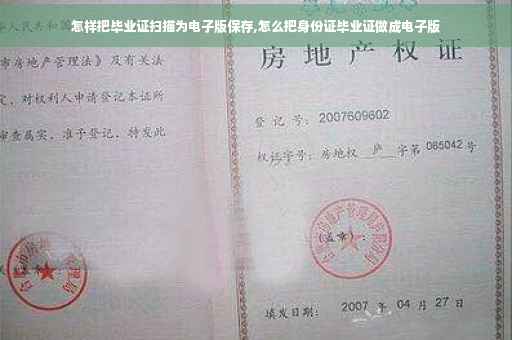 怎样把毕业证扫描为电子版保存,怎么把身份证毕业证做成电子版
人民共和国
市房地产管理法》及有关法
定，对权利人申请登记本证所
审查属实，准予登记，特发此
房地产权证
登记号：2007609602
权证字号：房地权 庐 字第 085042 号
(盖章)：
填发日期：2007 年 04 月 27 日